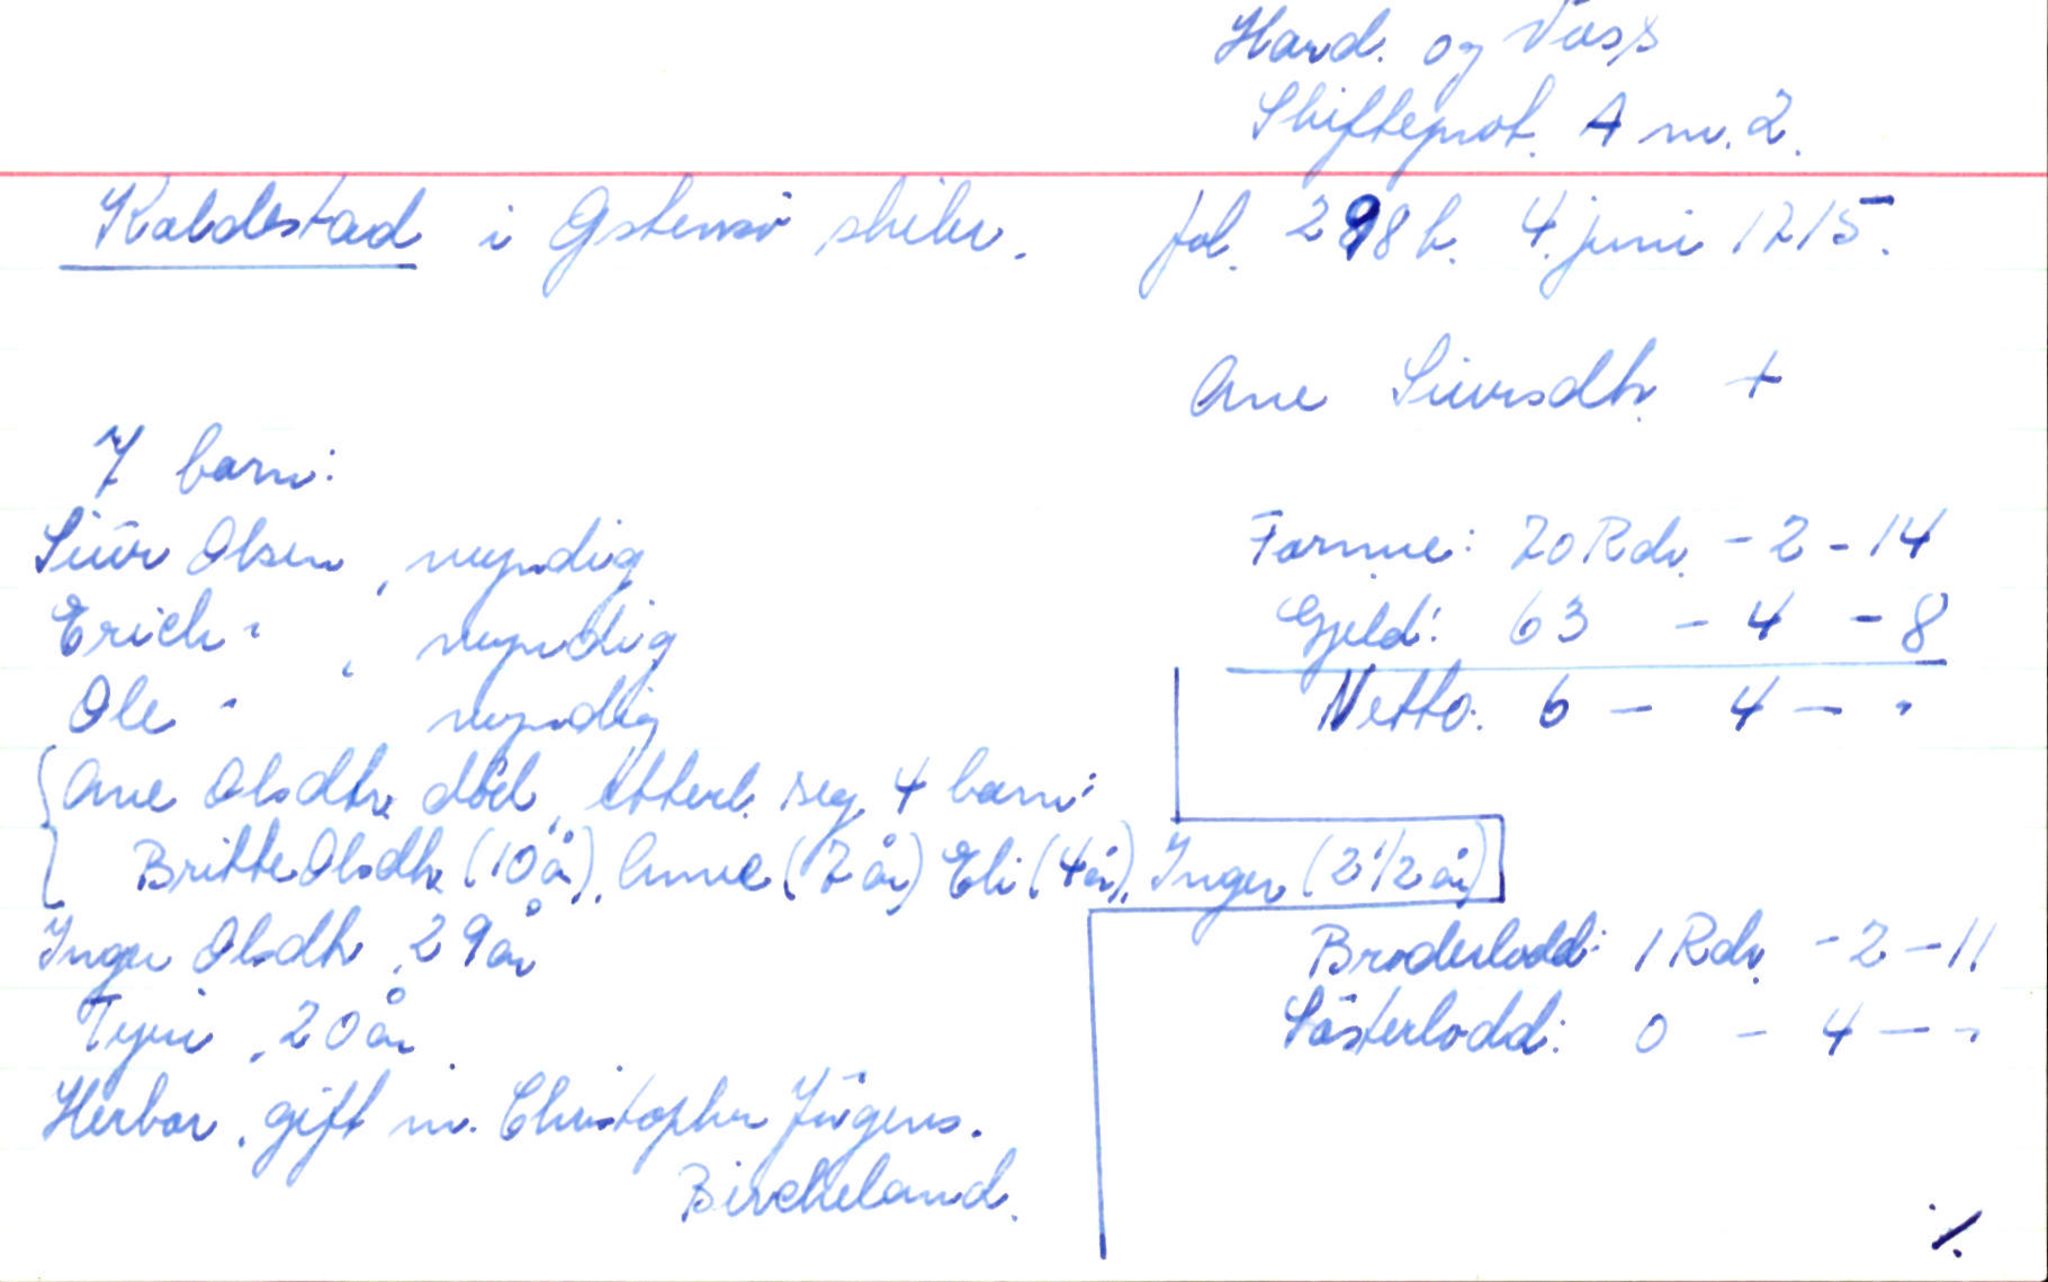 Hard. og Voss
Skifteprot. A nr. 2.
Kaldestad i Østensø skibr. fol. 298 b. 4. juni 1715.
Ane Siursdtr. +
7 barn:
Siur Olsen, myndig
Erich " , myndig
Ole " myndig
{ Ane Olsdtr. död, etterl. seg 4 barn:
Britte Olsdtr. (10 år), Anne (7 år) Eli (4 år), Inger (2 1/2 år)
Inger Olsdtr. 29 år
Tyri, 20 år.
Herbor, gift m. Christopher Jörgens.
Bircheland.
Formue: 70 Rdr. - 2 - 14
Gjeld: 63 - 4 - 8
Netto: 6 - 4 - "
Broderlodd: 1 Rdr. - 2 - 11
Sösterlodd: 0 - 4 - "
./.